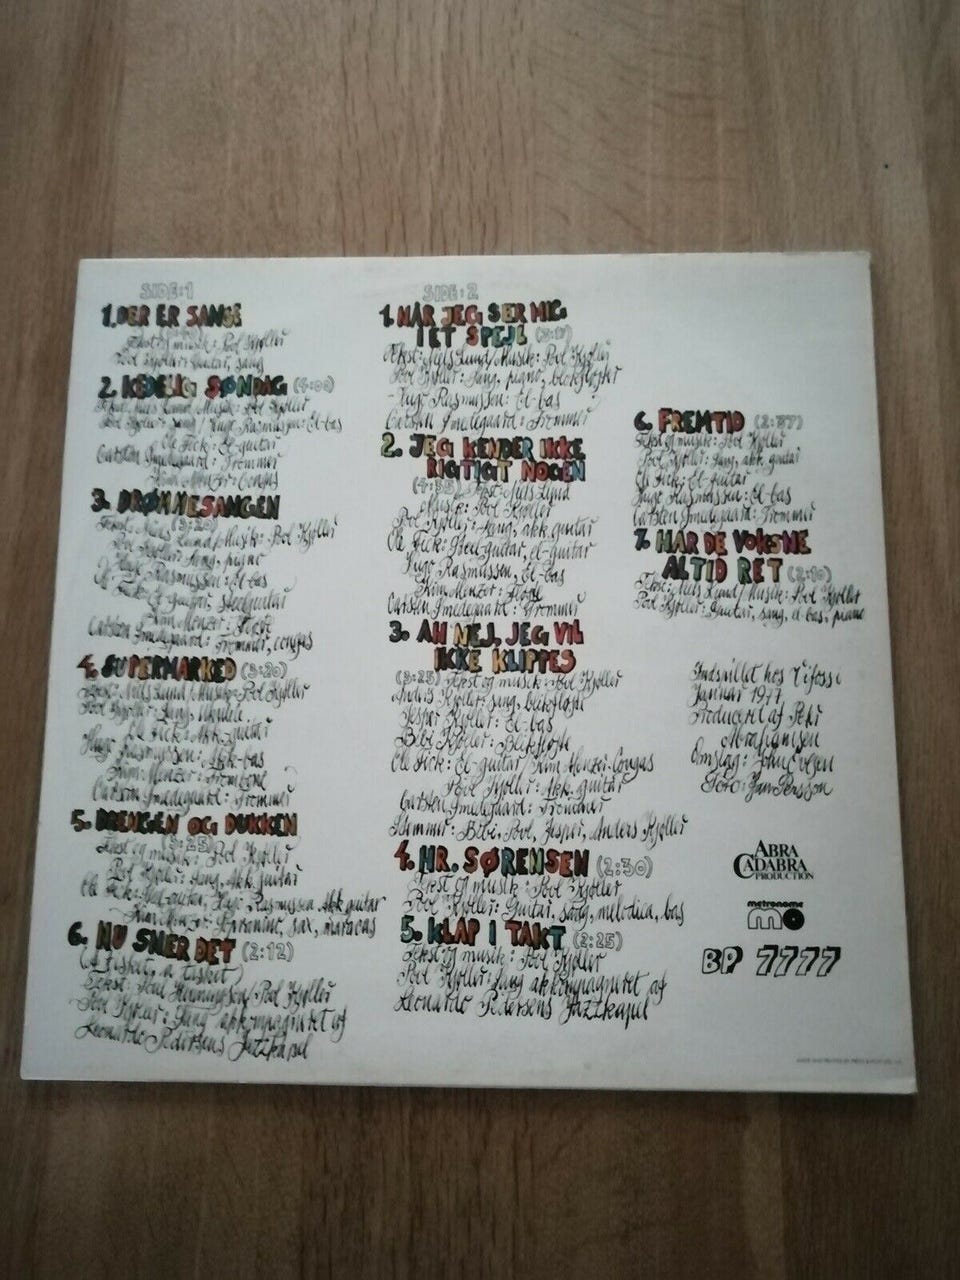 SIDE:1
1. DER ER SANGE
Tekst og musik: Poul Kjøller
Poul Kjøller: Guitar, sang
2. KEDELIG SØNDAG (4:00)
Tekst: Niels Lund/Musik: Poul Kjøller
Poul Kjøller: Sang/Hugo Rasmussen: El-bas
Ole Fick: El-guitar
Carsten Smedegaard: Trommer
Kim Menzer: Congas
3. DRØMMESANGEN
(3:20)
Tekst: Niels Lund/Musik: Poul Kjøller
Poul Kjøller: Sang, piano
Hugo Rasmussen: El-bas
Ole Fick: El-guitar, steelguitar
Kim Menzer: Fløjte
Carsten Smedegaard: Trommer, congas
4. SUPERMARKED (3:20)
Tekst: Niels Lund/Musik: Poul Kjøller
Poul Kjøller: Sang, ukulele
Ole Fick: Akk. guitar
Hugo Rasmussen: Akk. bas
Kim Menzer: Trombone
Carsten Smedegaard: Trommer
5. DRENGEN OG DUKKEN
(3:25)
Tekst og musik: Poul Kjøller
Poul Kjøller: Sang, Akk. guitar
Ole Fick: guitar, Hugo Rasmussen: Akk. guitar
Kim Menzer: Sopranino, sax, maracas
6. NU SNER DET (2:12)
(A tisket, a tasket)
Tekst: Poul Henningsen/Poul Kjøller
Poul Kjøller: Sang akkompagneret af
Leonardo Pedersens Jazzkapel
SIDE:2
1. NÅR JEG SER MIG
I ET SPEJL
Tekst: Niels Lund/Musik: Poul Kjøller
Poul Kjøller: Sang, piano, blokfløjter
Hugo Rasmussen: El-bas
Carsten Smedegaard: Trommer
2. JEG KENDER IKKE
RIGTIGT NOGEN
Tekst: Niels Lund
Musik: Poul Kjøller
Poul Kjøller: Sang, akk. guitar
Ole Fick: Steel-guitar, el-guitar
Hugo Rasmussen, El-bas
Kim Menzer: Fløjte
Carsten Smedegaard: Trommer
3. AH NEJ, JEG VIL
IKKE KLIPPES
(3:25) Tekst og musik: Poul Kjøller
Anders Kjøller: Sang, blokfløjte
Jesper Kjøller: El-bas
Bibi Kjøller: Blokfløjte
Ole Fick: El-guitar/Kim Menzer: Congas
Poul Kjøller: Akk. guitar
Carsten Smedegaard: Trommer
Stemmer: Bibi, Poul, Jesper, Anders Kjøller
4. HR. SØRENSEN (2:30)
Tekst og musik: Poul Kjøller
Poul Kjøller: Guitar, sang, melodica, bas
5. KLAP I TAKT (2:25)
Tekst og musik: Poul Kjøller
Poul Kjøller: Sang akkompagneret af
Leonardo Pedersens Jazzkapel
6. FREMTID (2:37)
Tekst og musik: Poul Kjøller
Poul Kjøller: Sang, akk. guitar
Ole Fick: El-guitar
Hugo Rasmussen: El-bas
Carsten Smedegaard: Trommer
7. HAR DE VOKSNE
ALTID RET (2:10)
Tekst: Niels Lund/Musik: Poul Kjøller
Poul Kjøller: Guitar, sang, el-bas, piano
Indspillet hos
Januar 1977
Produceret af Peter
Abrahamsen
Omslag: John Ovesen
Foto: Jan Persson
ABRA
CADABRA
PRODUCTION
metronome
mo
BP 7777